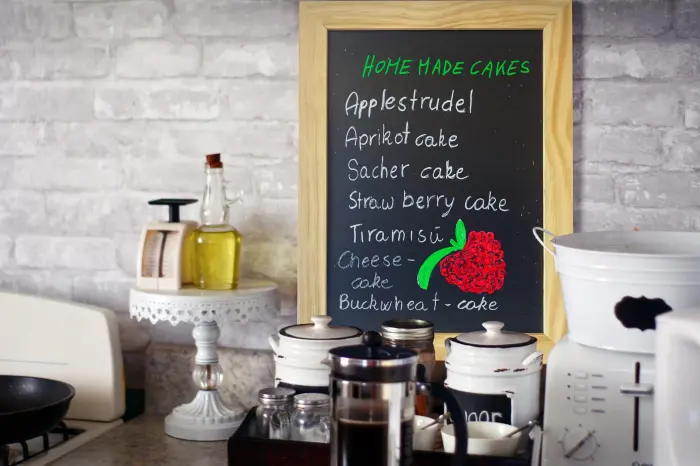 HOME MADE CAKES
Applestrudel
Aprikot cake
Sacher cake
Strawberry cake
Tiramisū
Cheese-
cake
Buckwheat-cake